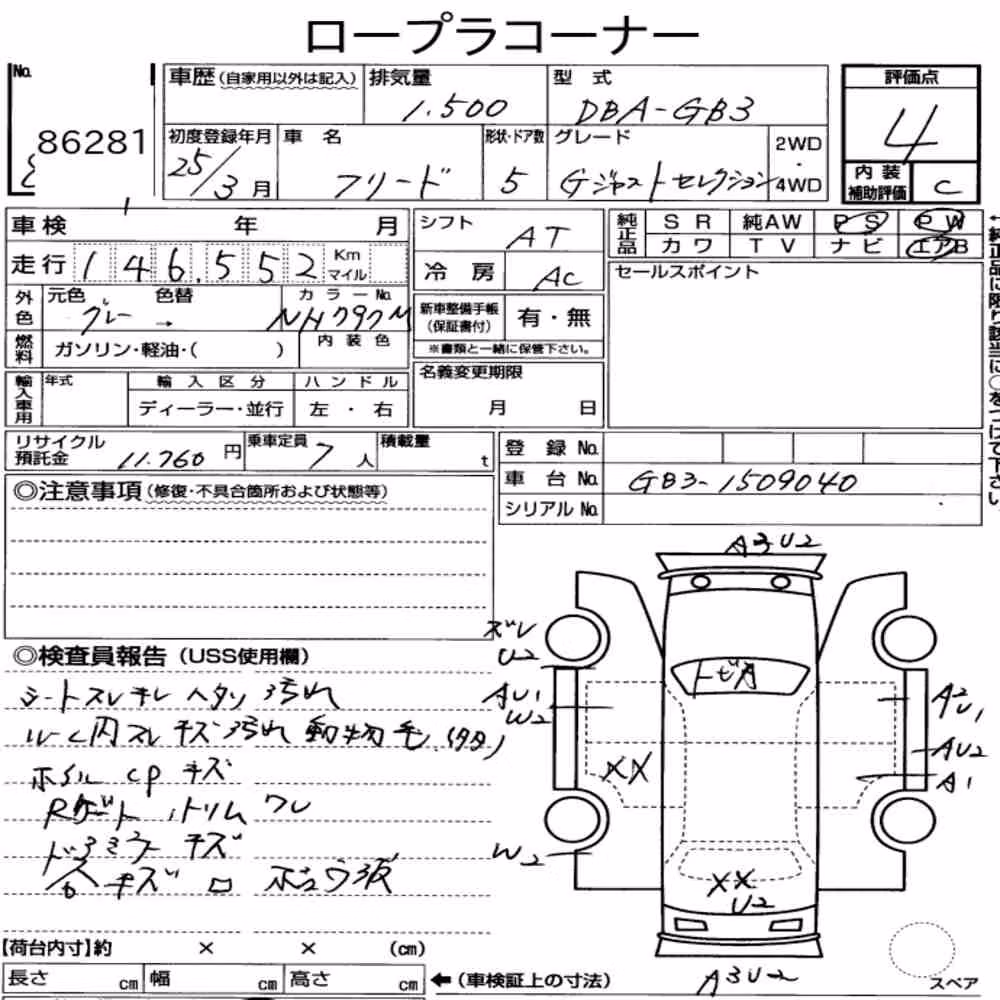 ロープラコーナー
No. 86281
車歴(自家用以外は記入) 排気量 1.500 型式 DBA-GB3
初度登録年月 25/3月 車名 フリード 形状・ドア数 5 グレード Gジャストセレクション 2WD・4WD
評価点 4
内装補助評価 C
車検 年 月
走行 146,552 Km マイル
外色 元色 グレー → 色替 カラーNo. NH797M
燃料 ガソリン・軽油・( ) 内装色
輸入車用 年式 輸入区分 ディーラー・並行 ハンドル 左・右
シフト AT
冷房 AC
新車整備手帳(保証書付) 有・無
※書類と一緒に保管下さい。
名義変更期限 月 日
純正品 SR 純AW PS PW
カワ TV ナビ エアB
セールスポイント
←純正品に限り該当に○をつけて下さい。
リサイクル預託金 11.760円 乗車定員 7人 積載量 t
登録No.
車台No. GB3-1509040
シリアルNo.
◎注意事項(修復・不具合箇所および状態等)
◎検査員報告(USS使用欄)
シートスレキレヘタリ汚れ
ルーム内スレキズ汚れ動物毛
ホイルCPキズ
Rゲートトリムワレ
ドアミラーキズ
各キズ
A3 U2
ズレ
U2
AU1
W2
トビ有
A2
U1
AU2
A1
XX
W2
XX
U2
A3 U2
スペア
【荷台内寸】約 × × (cm)
長さ cm 幅 cm 高さ cm ←(車検証上の寸法)